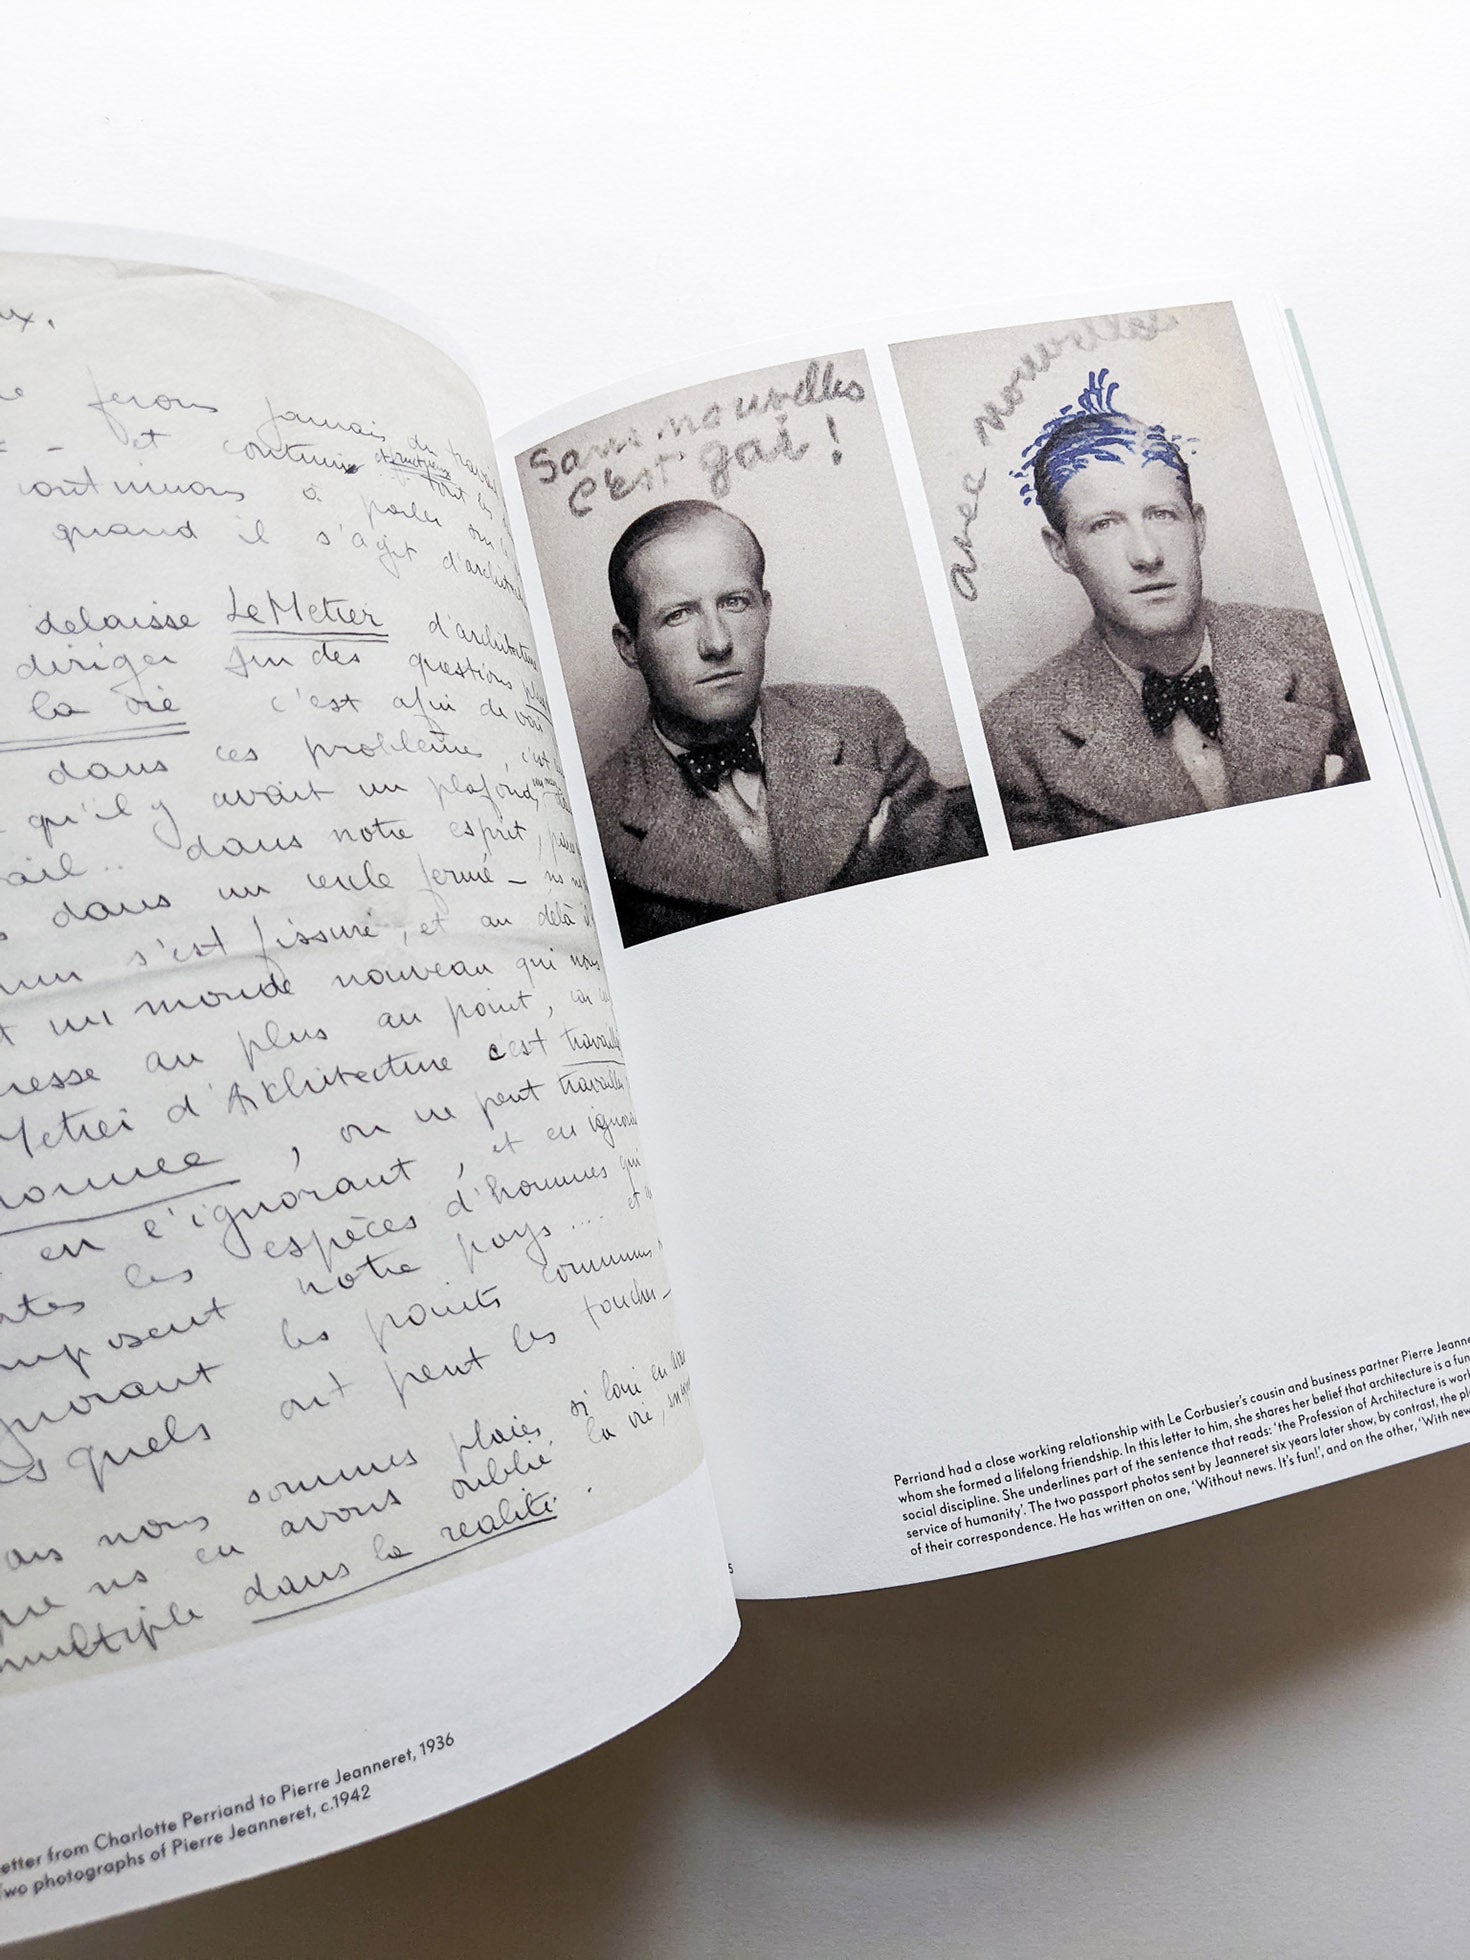 ux.
ferons jamais du
et continuer
continuons à parler
quand il s'agit d'archite
delaisse Le Metier d'architecture
diriger sur des questions plus
la vie c'est afin de voir
dans ces problèmes, c'est
qu'il y avait un plafond,
ail.. dans notre esprit,
dans un cercle fermé _
s'est fissuré, et au délà il
un monde nouveau qui nous
resse au plus au point, car
Metier d'Architecture c'est travaill
homme, on ne peut travailler
en l'ignorant, et en ignora
tes les espèces d'hommes qui
mposent notre pays.... et
norant les points communs
squels ont peut les toucher_
ais nous sommes plaies, si loin en
que ns en avons oublié la vie,
multiple dans la realité.
etter from Charlotte Perriand to Pierre Jeanneret, 1936
Two photographs of Pierre Jeanneret, c.1942
Sans nouvelles
c'est gai !
avec nouvelles
Perriand had a close working relationship with Le Corbusier's cousin and business partner Pierre Jeanne
whom she formed a lifelong friendship. In this letter to him, she shares her belief that architecture is a fun
social discipline. She underlines part of the sentence that reads: 'the Profession of Architecture is work
service of humanity'. The two passport photos sent by Jeanneret six years later show, by contrast, the pl
of their correspondence. He has written on one, 'Without news. It's fun!', and on the other, 'With new
5